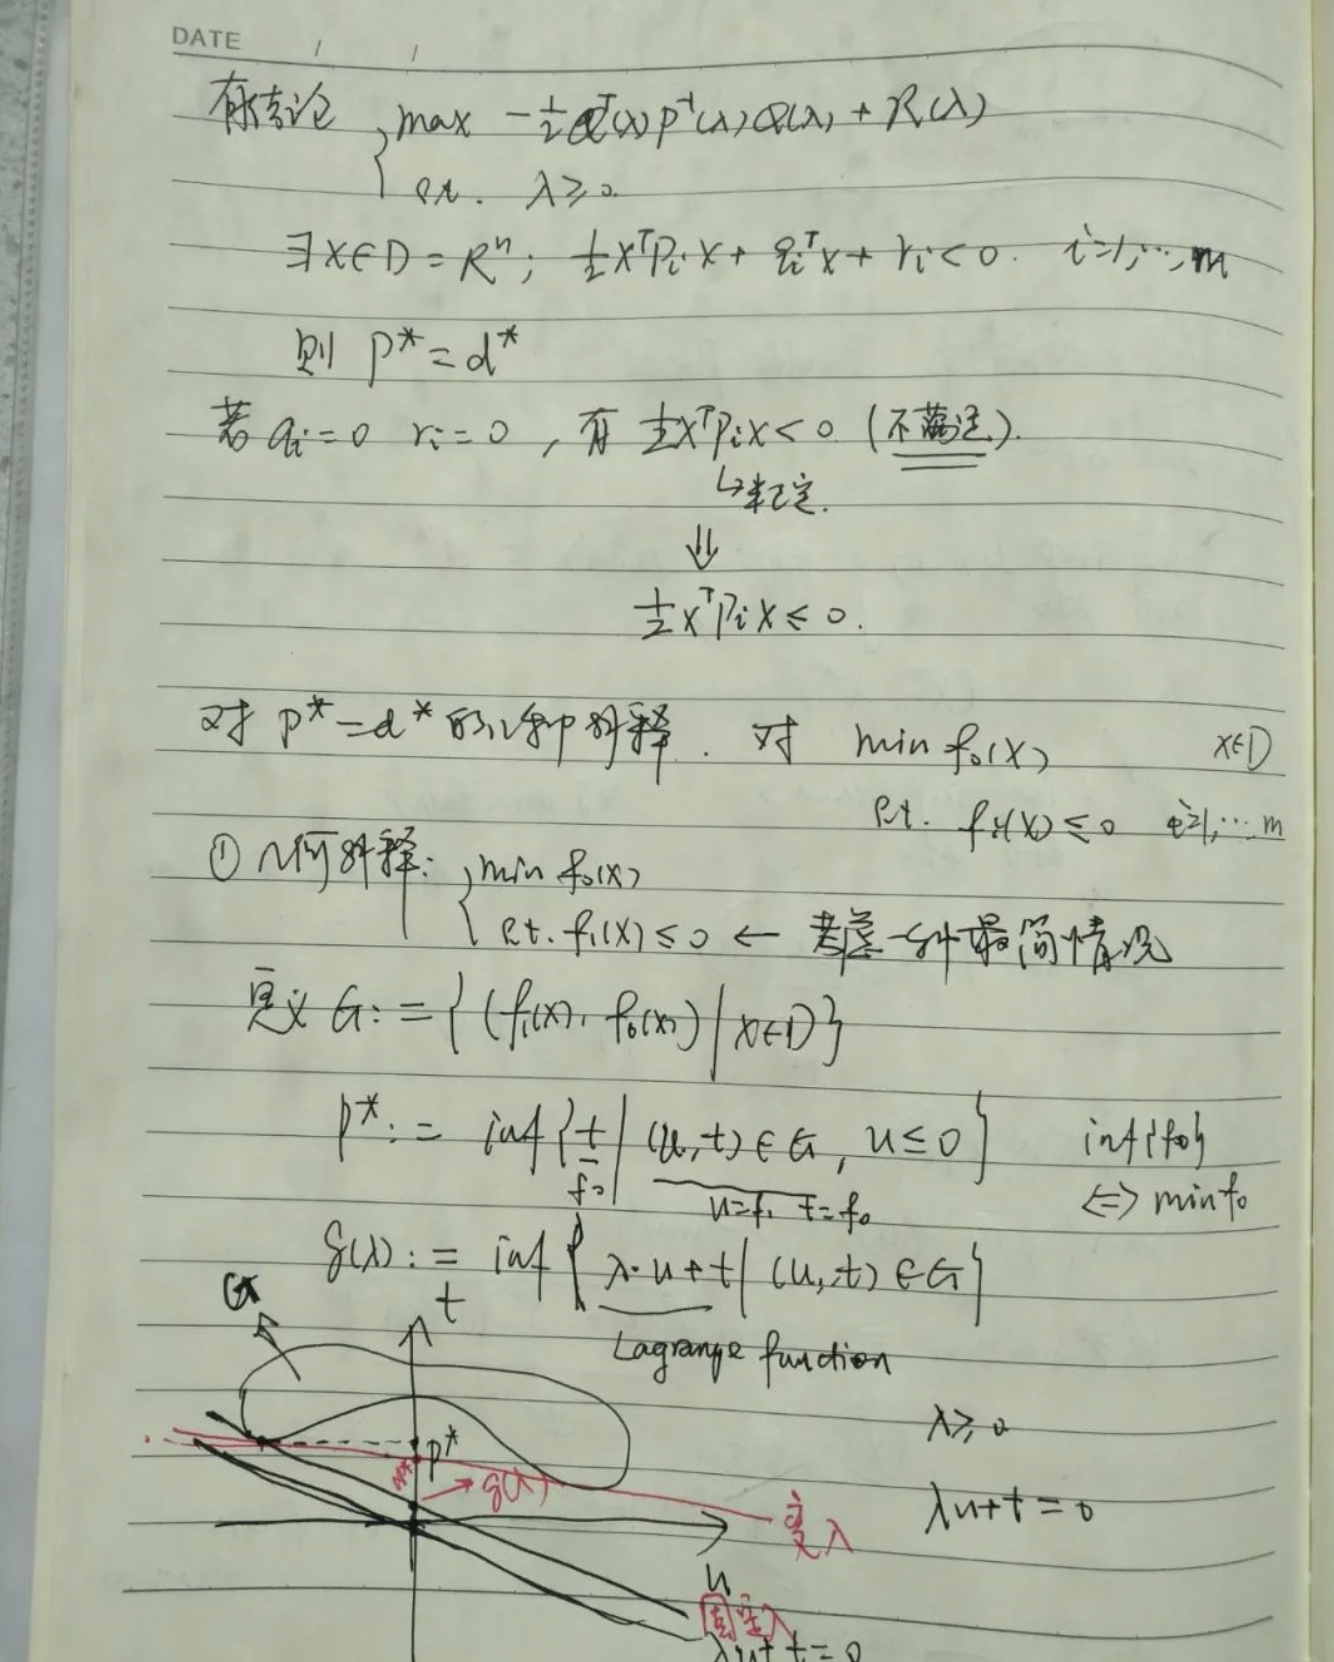 DATE / /
有结论 { max -½Q^T(λ)P^{-1}(λ)Q(λ) + R(λ)
s.t. λ≥0
∃x∈D=R^n; ½x^T P_i x + q_i^T x + r_i < 0. i=1,…,m
则 p*=d*
若 q_i=0 r_i=0, 有 ½x^T P_i x<0 (不满足).
↳半正定.
⇓
½x^T P_i x ≤ 0.
对 p*=d* 的几种解释. 对 min f_0(x) x∈D
s.t. f_i(x)≤0 i=1,…m
① 几何解释: { min f_0(x)
s.t. f_1(x)≤0 ← 考虑一种最简情况
定义 G:={(f_1(x), f_0(x)) | x∈D}
p*:= inf{t | (u,t)∈G, u≤0} inf{f_0}
f_0 u=f_1 t=f_0 ⇔ min f_0
g(λ):= inf{λ·u+t | (u,t)∈G}
G t Lagrange function
λ≥0
p*
g(λ)
λu+t=0
变λ
u
固定λ
λu+t=0